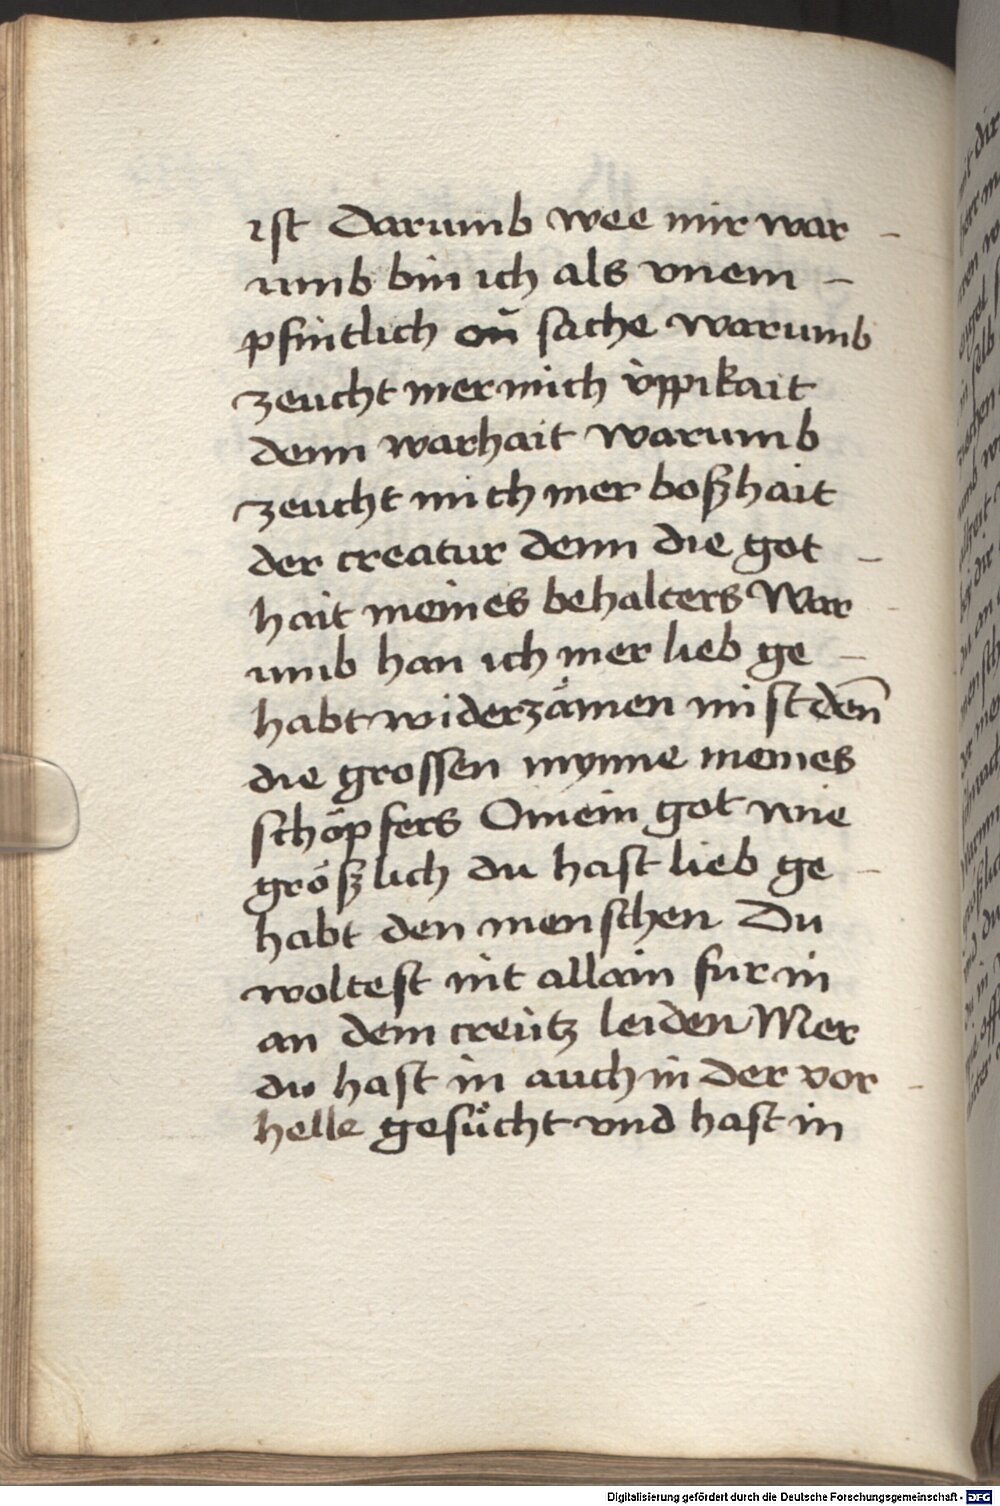 ist Darumb wee mir war –
umb bin ich als vnem –
pfintlich on̄ sache warumb
zeucht mer mich v̈ppikait
denn warhait warumb
zeucht mich mer boßhait
der creatur denn die got –
hait meines behalters War –
umb han ich mer lieb ge –
habt widerzämen mist den̄
die grossen mynne meines
schöpfers O mein got wie
größlich du hast lieb ge –
habt den menschen Du
woltest nit allain fur in
an dem creütz leiden Mer
du hast in auch in der vor –
helle gesu̇cht vnd hast in
Digitalisierung gefördert durch die Deutsche Forschungsgemeinschaft - DFG